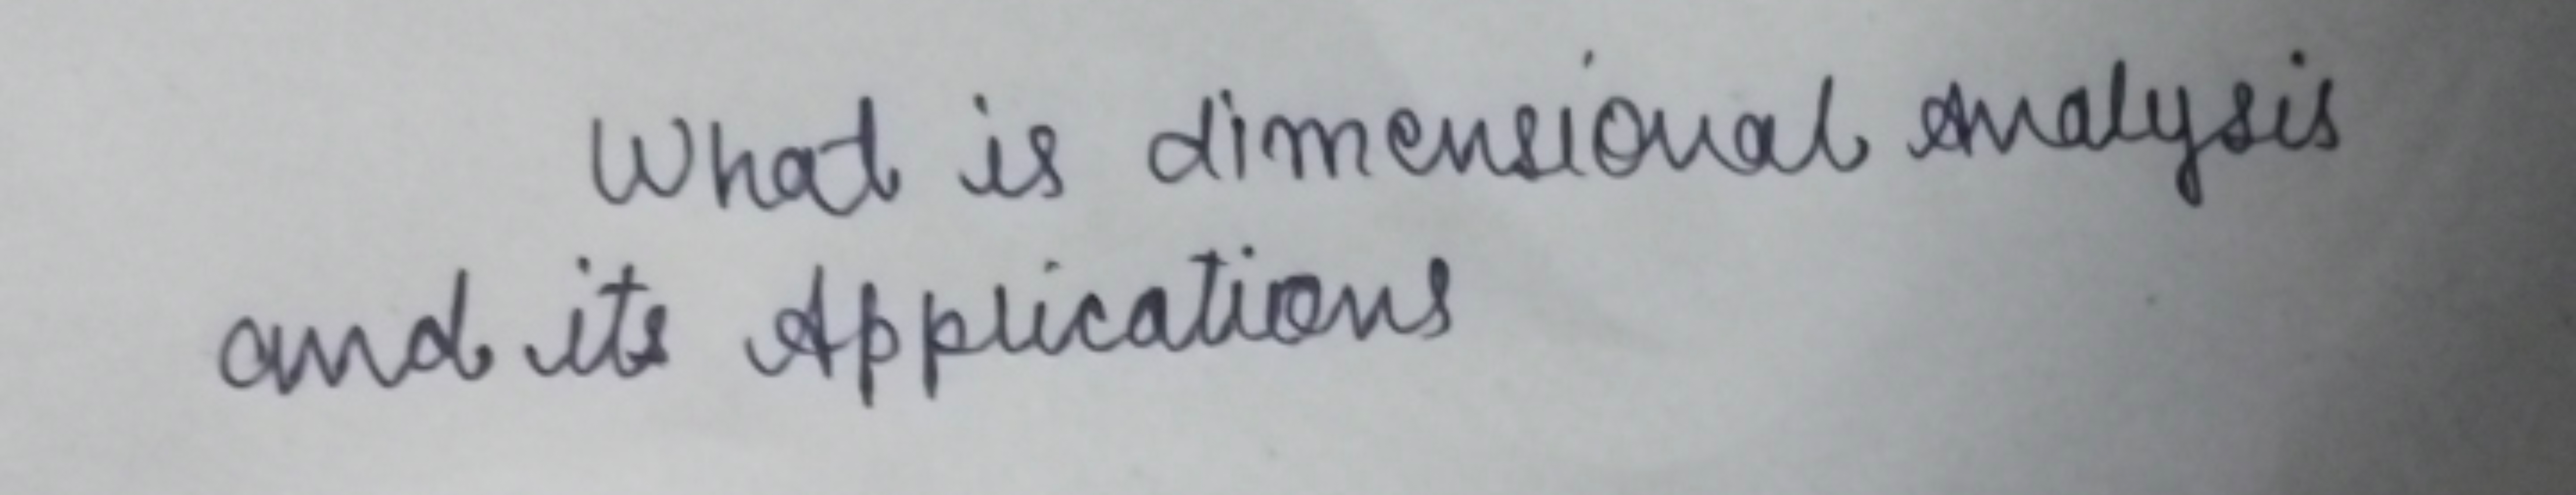 What is dimensional Analysis
and its Applications